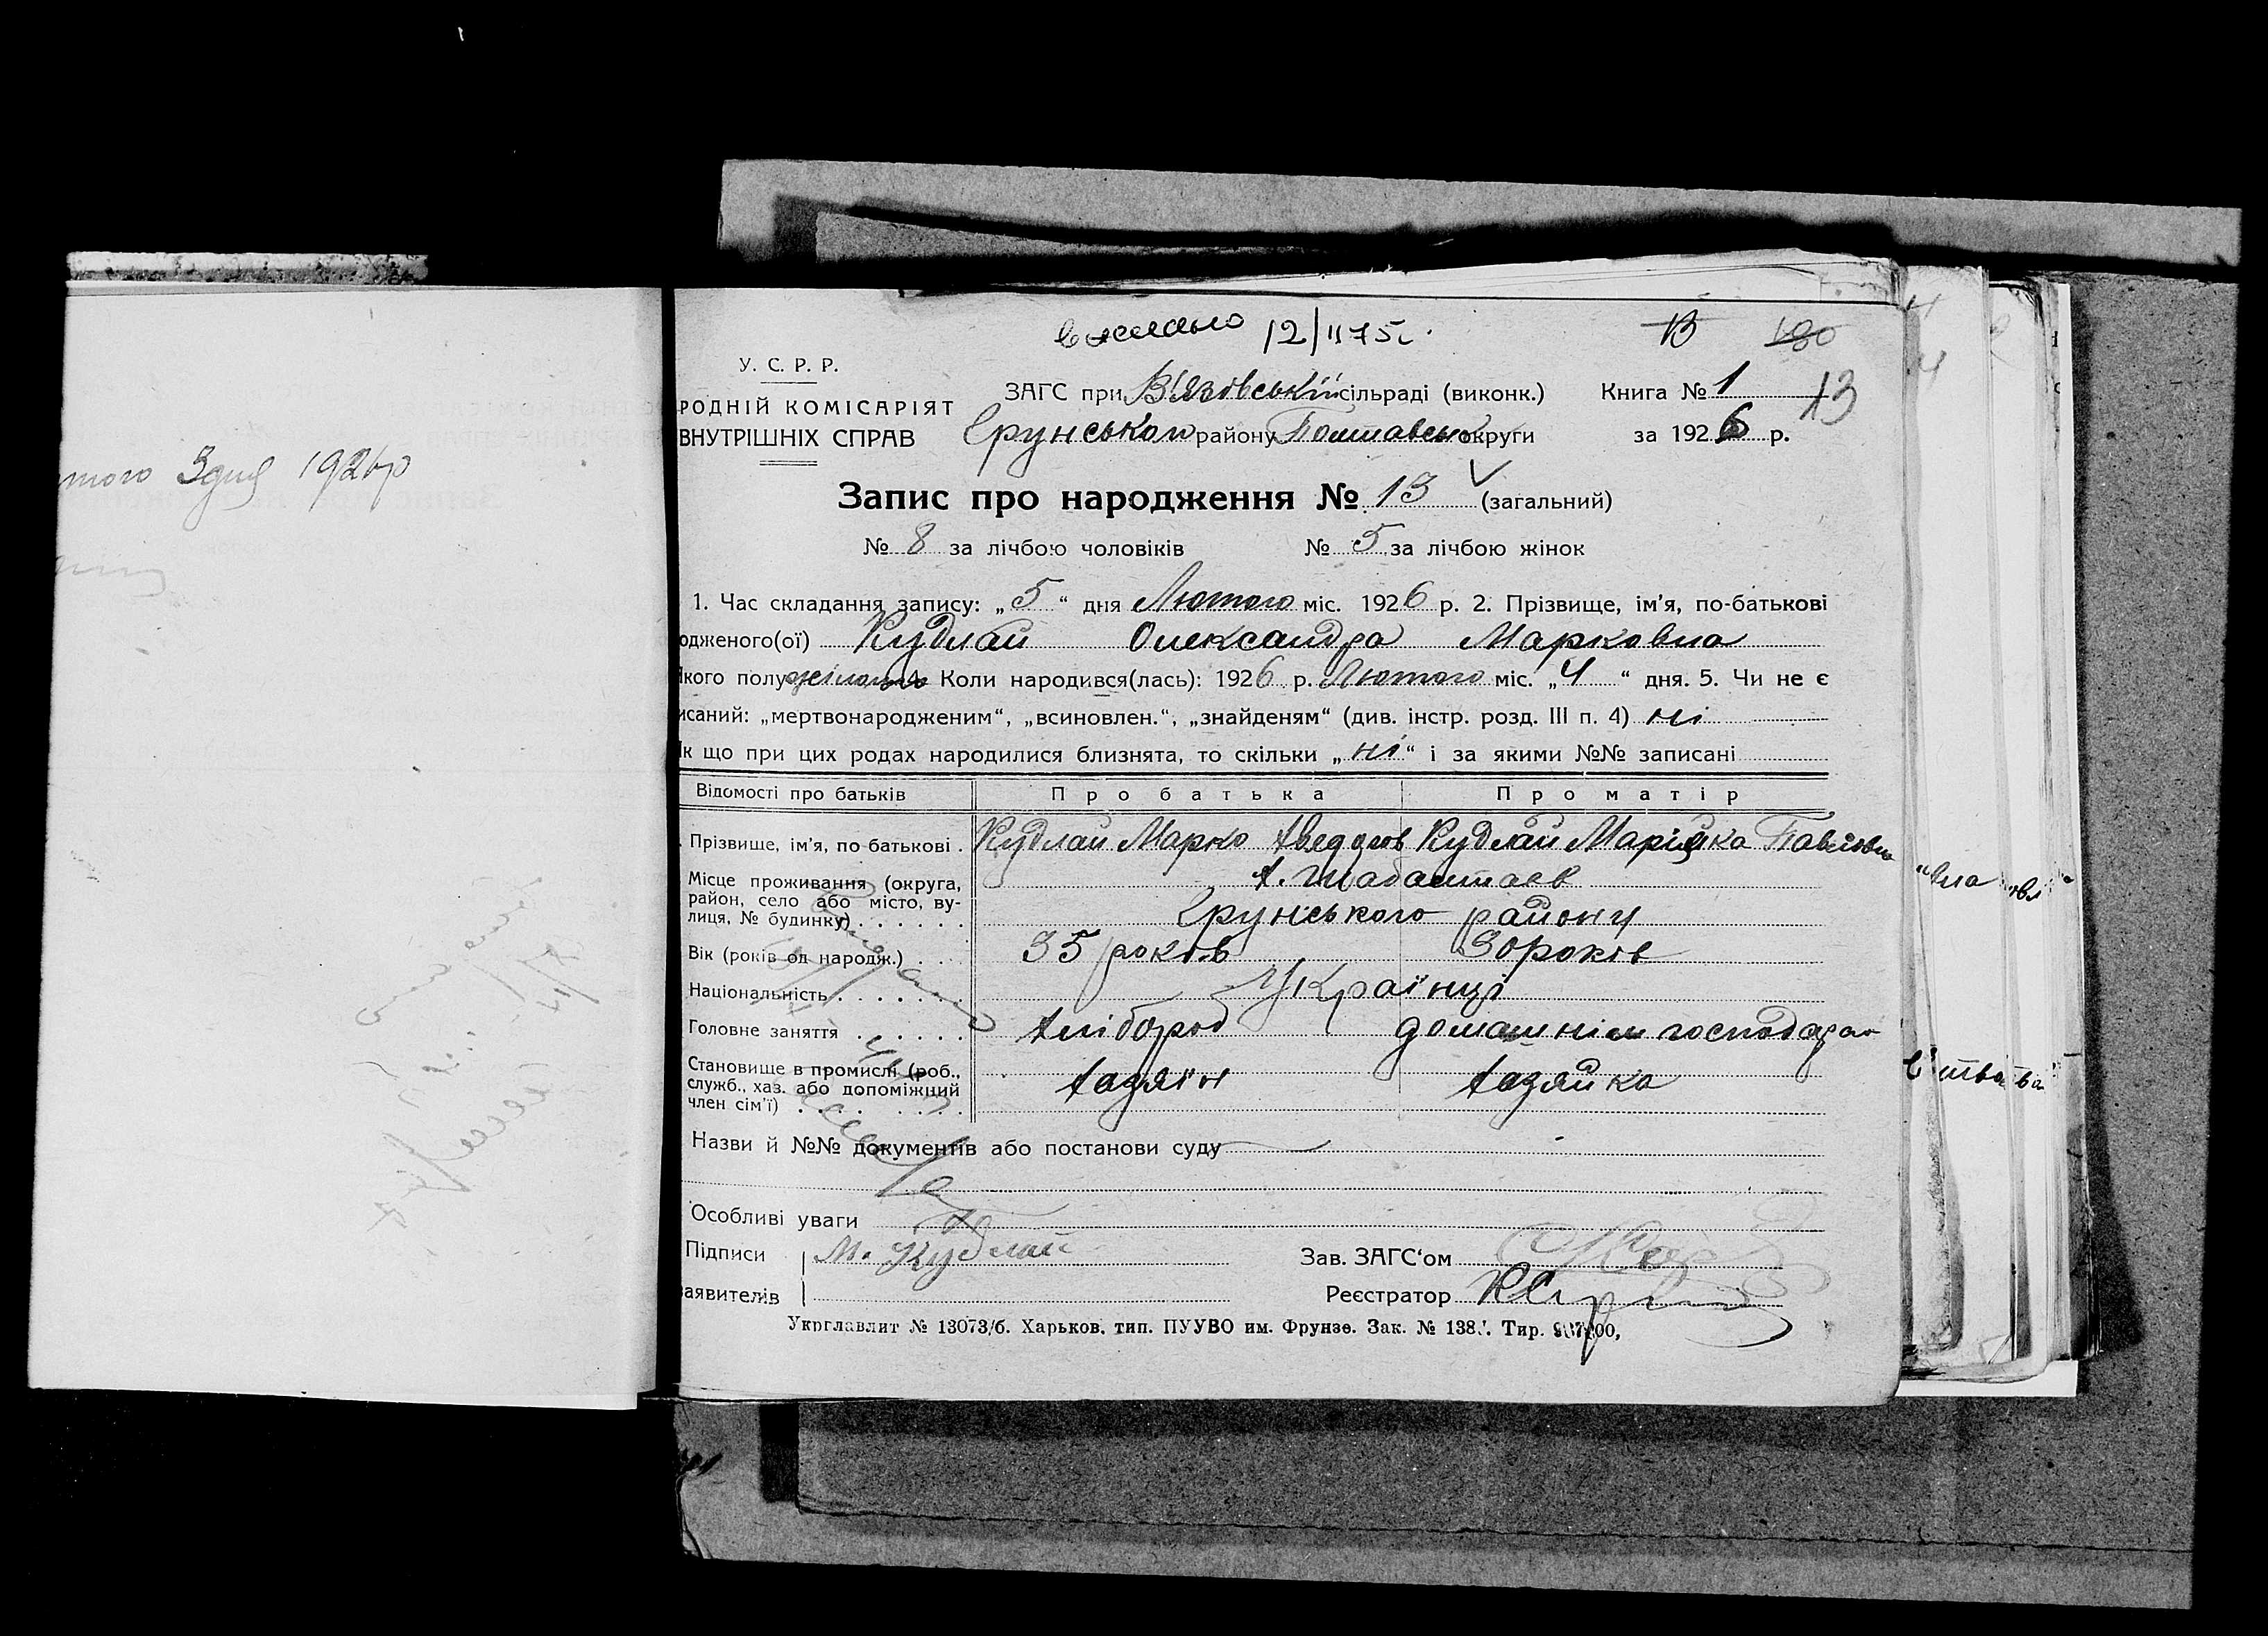 12/II 75г. 13 180
У. С. Р. Р.
ЗАГС при В'язовській сільраді (виконк.) Книга № 1 13
РОДНІЙ КОМІСАРІЯТ
ВНУТРІШНІХ СПРАВ Грунського району Полтавської округи за 1926 р.
того 3 дня 1926р
Запис про народження № 13 (загальний)
№ 8 за лічбою чоловіків № 5 за лічбою жінок
1. Час складання запису: „5“ дня Лютого міс. 1926 р. 2. Прізвище, ім’я, по-батькові
одженого(ої) Кудлай Олександра Марковна
якого полу жіночого 4. Коли народився(лась): 1926 р. Лютого міс. „4“ дня. 5. Чи не є
исаний: „мертвонародженим“, „всиновлен.“, „знайденям“ (див. інстр. розд. III п. 4) ні
Як що при цих родах народилися близнята, то скільки „ні“ і за якими №№ записані
Відомості про батьків Про батька Про матір
Прізвище, ім’я, по-батькові . Кудлай Марко Кудлай Марійка Павловна
Місце проживання (округа,
район, село або місто, ву-
лиця, № будинку) . . . . . . х. Грунського району
Вік (років од народж.) . . . 35 років 30 років
Національність . . . . . . . Українці
Головне заняття . . . . . . хлібороб домашнім господар
Становище в промислі (роб.,
служб., хаз. або допоміжний
член сім’ї) . . . . . . . хазяїн хазяйка
Назви й №№ документів або постанови суду
Особливі уваги
Підписи М. Кудлай Зав. ЗАГС‘ом
заявителів Реєстратор
Укрглавлит № 13073/б. Харьков. тип. ПУУВО им. Фрунзе. Зак. № 138 . Тир.